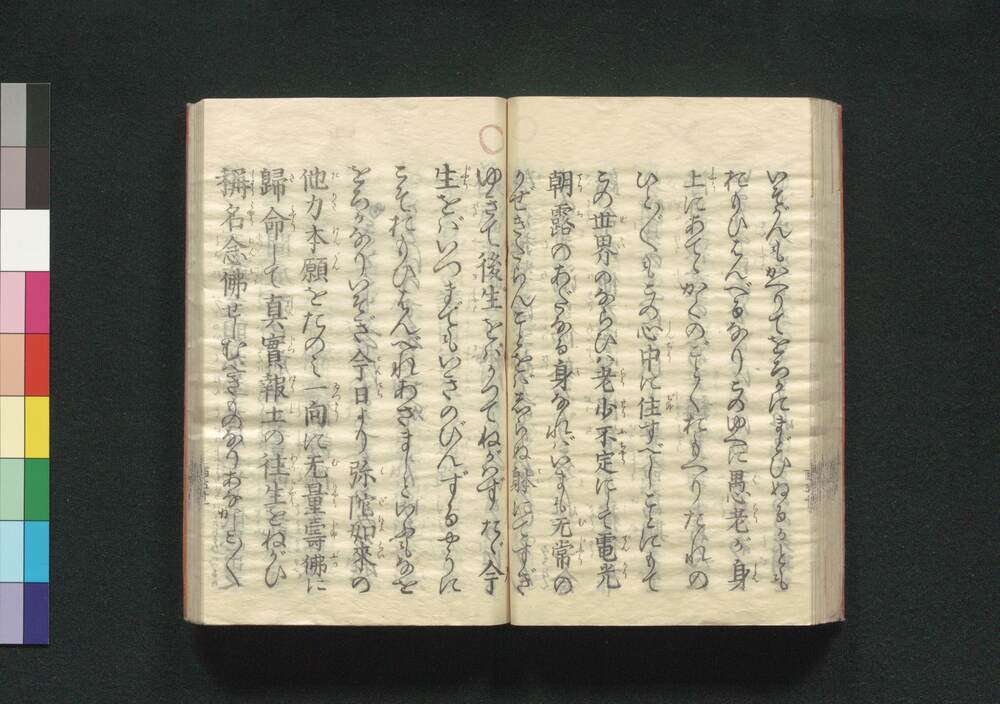 いそがんもかへりてをろかにまどひぬるかとも
おもひはんべるなりこのゆへに愚老が身
上にあてゝかくのごとくおもへりたれの
ひと〴〵もこの心中に住すべしことにもて
この世界のならひは老少不定にして電光
朝露のあだなる身なればいまも无常の
かせきたらんことをばしらぬ躰にてすぎ
ゆきて後生をばかつてねがはずたゞ今
生をばいつまでもいきのびんずるやうに
こそおもひはんべれあさましといふもなを
をろかなりいそぎ今日より弥陀如來の
他力本願をたのみ一向に无量壽佛に
歸命して真實報土の往生をねがひ
稱名念佛せしむべきものなりあなかしこ〳〵